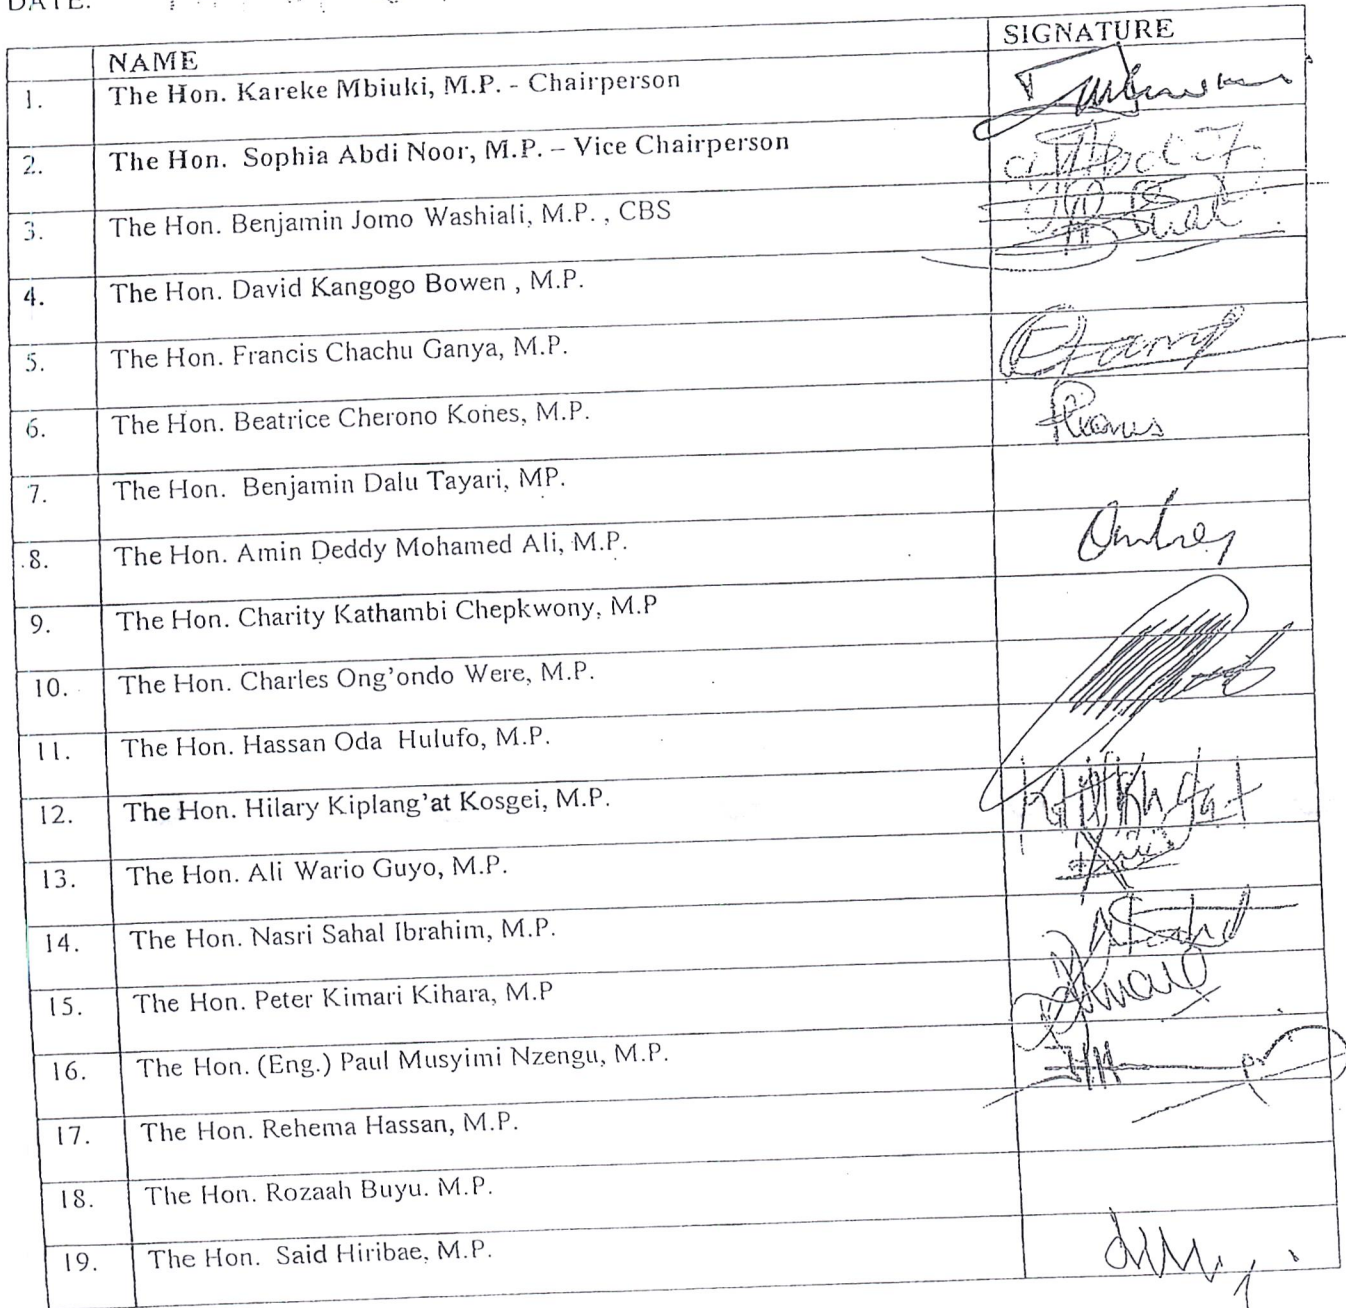 DATE:
NAME SIGNATURE
1. The Hon. Kareke Mbiuki, M.P. - Chairperson
2. The Hon. Sophia Abdi Noor, M.P. – Vice Chairperson
3. The Hon. Benjamin Jomo Washiali, M.P. , CBS
4. The Hon. David Kangogo Bowen , M.P.
5. The Hon. Francis Chachu Ganya, M.P.
6. The Hon. Beatrice Cherono Kones, M.P.
7. The Hon. Benjamin Dalu Tayari, MP.
8. The Hon. Amin Deddy Mohamed Ali, M.P.
9. The Hon. Charity Kathambi Chepkwony, M.P
10. The Hon. Charles Ong’ondo Were, M.P.
11. The Hon. Hassan Oda Hulufo, M.P.
12. The Hon. Hilary Kiplang’at Kosgei, M.P.
13. The Hon. Ali Wario Guyo, M.P.
14. The Hon. Nasri Sahal Ibrahim, M.P.
15. The Hon. Peter Kimari Kihara, M.P
16. The Hon. (Eng.) Paul Musyimi Nzengu, M.P.
17. The Hon. Rehema Hassan, M.P.
18. The Hon. Rozaah Buyu. M.P.
19. The Hon. Said Hiribae, M.P.